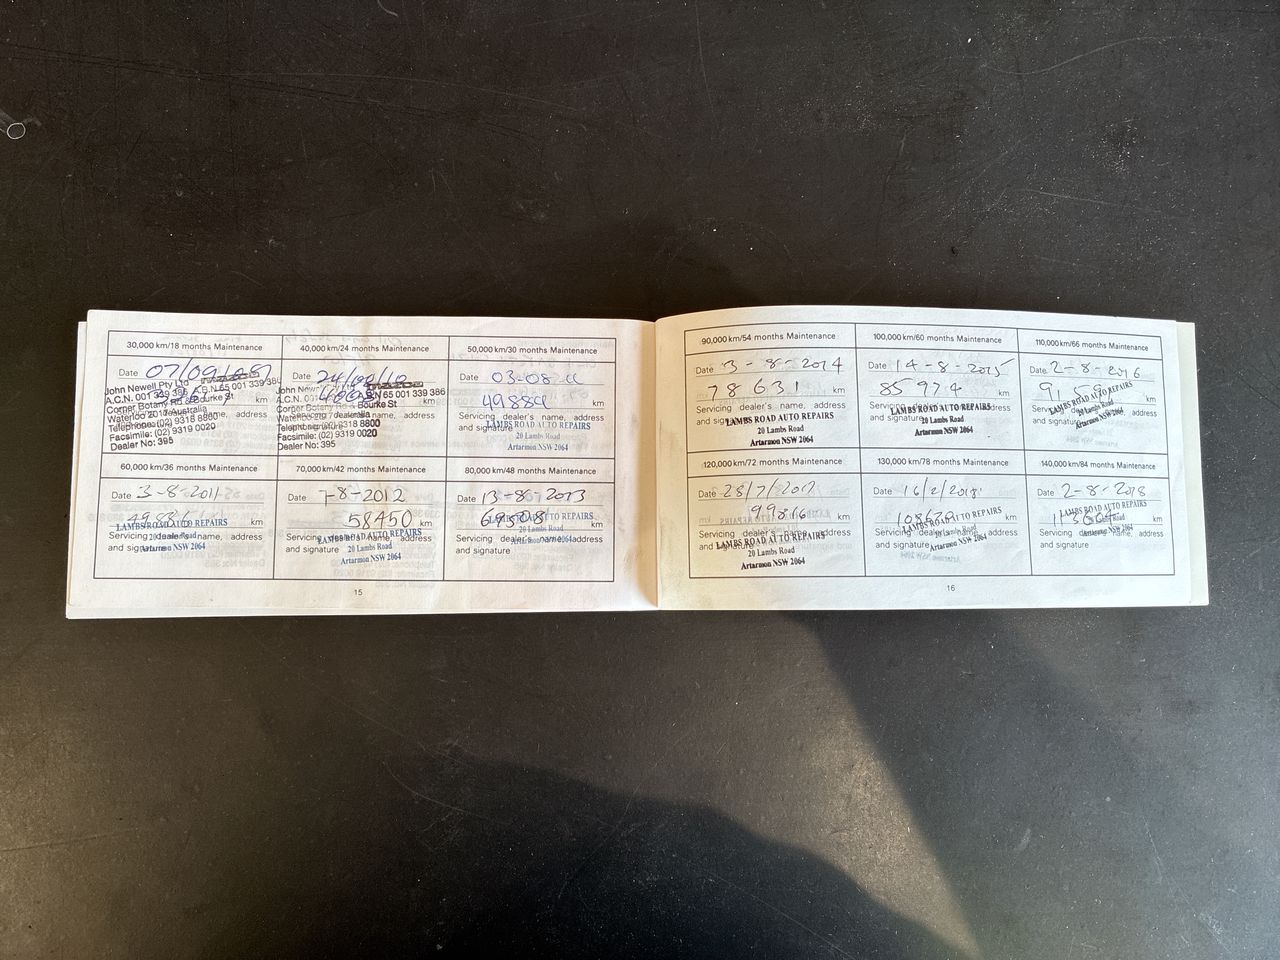 30,000 km/18 months Maintenance
Date 07/09/09
John Newell Pty Ltd
A.C.N. 001 339 386 A.B.N 65 001 339 386
Corner Botany Rd & Bourke St
Waterloo 2017 Australia
Telephone: (02) 9318 8800
Facsimile: (02) 9319 0020
Dealer No: 395
40,000 km/24 months Maintenance
Date
John Newell
A.C.N. A.B.N 65 001 339 386
km
Corner Botany Rd & Bourke St
Servicing dealer's name, address
Telephone: (02) 9318 8800
Facsimile: (02) 9319 0020
Dealer No: 395
50,000 km/30 months Maintenance
Date 03-08-11
49884 km
Servicing dealer's name, address
and signature LAMBS ROAD AUTO REPAIRS
20 Lambs Road
Artarmon NSW 2064
60,000 km/36 months Maintenance
Date 3-8-2011
km
LAMBS ROAD AUTO REPAIRS
Servicing dealer's name, address
20 Lambs Road
and signature Artarmon NSW 2064
70,000 km/42 months Maintenance
Date 7-8-2012
58450 km
Servicing dealer's name, address
LAMBS ROAD AUTO REPAIRS
and signature 20 Lambs Road
Artarmon NSW 2064
80,000 km/48 months Maintenance
Date 13-8-2013
69508 km
LAMBS ROAD AUTO REPAIRS
20 Lambs Road
Servicing dealer's name, address
Artarmon NSW 2064
and signature
15
90,000 km/54 months Maintenance
Date 3-8-2014
78631 km
Servicing dealer's name, address
and signature LAMBS ROAD AUTO REPAIRS
20 Lambs Road
Artarmon NSW 2064
100,000 km/60 months Maintenance
Date 14-8-2015
85974 km
Servicing dealer's name, address
LAMBS ROAD AUTO REPAIRS
and signature 20 Lambs Road
Artarmon NSW 2064
110,000 km/66 months Maintenance
Date 2-8-2016
km
LAMBS ROAD AUTO REPAIRS
Servicing dealer's name, address
20 Lambs Road
and signature Artarmon NSW 2064
120,000 km/72 months Maintenance
Date 28/7/2017
99816 km
Servicing dealer's name, address
LAMBS ROAD AUTO REPAIRS
and signature 20 Lambs Road
Artarmon NSW 2064
130,000 km/78 months Maintenance
Date 16/2/2018
km
LAMBS ROAD AUTO REPAIRS
Servicing dealer's name, address
20 Lambs Road
and signature Artarmon NSW 2064
140,000 km/84 months Maintenance
Date 2-8-2018
km
LAMBS ROAD AUTO REPAIRS
20 Lambs Road
Servicing dealer's name, address
Artarmon NSW 2064
and signature
16